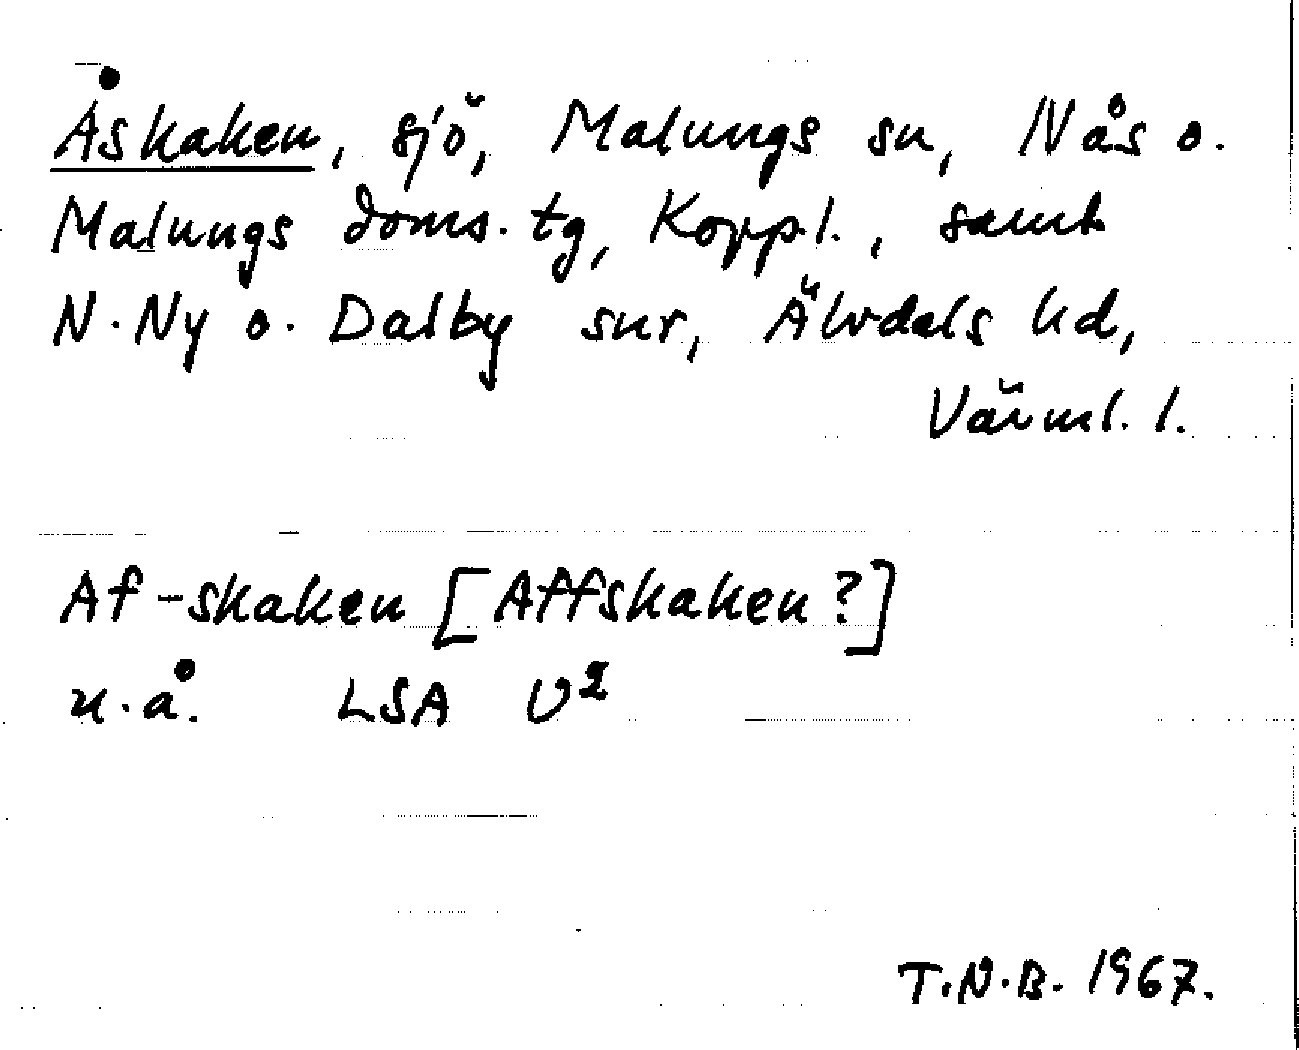 Åskaken, sjö, Malungs sn, Nås o.
Malungs doms. tg, Koppl., samt
N. Ny o. Dalby snr, Älvdals hd,
Värml. l.
Af-skaken [Affskaken?]
u.å. LSA U²
T.N.B. 1967.